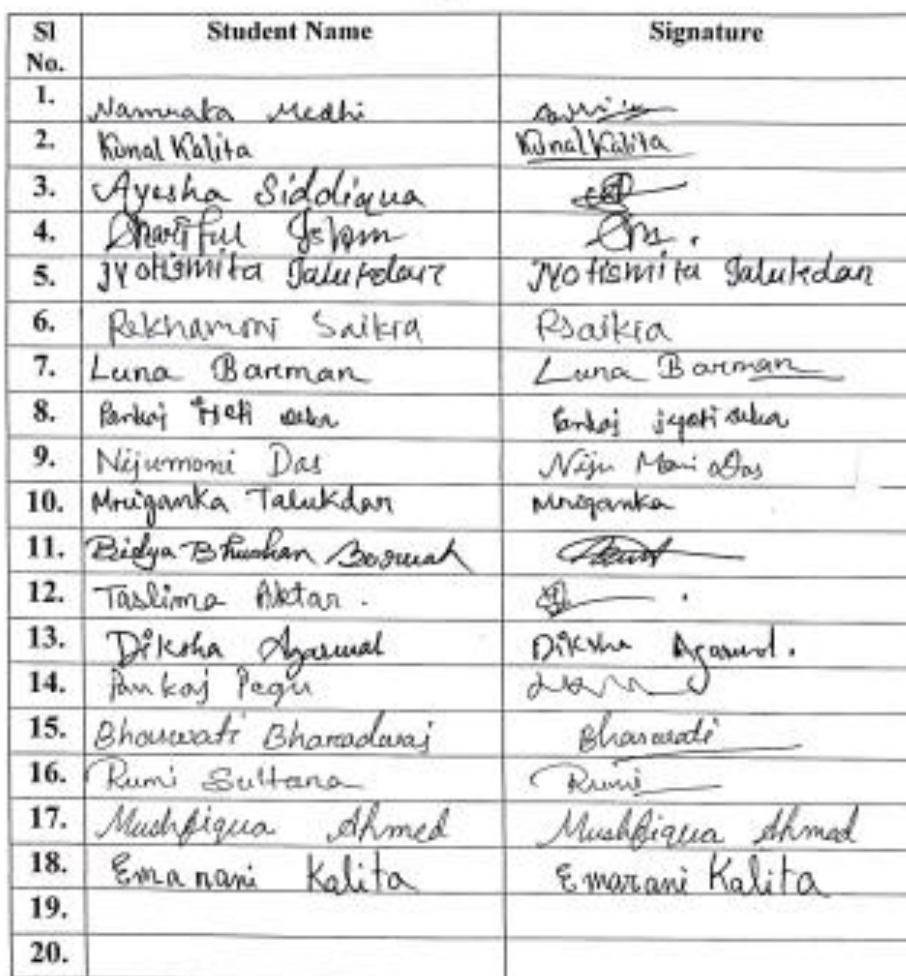 Sl No. Student Name Signature
1. Namrata Medhi
2. Kunal Kalita Kunal Kalita
3. Ayesha Siddiqua
4. Shariful Islam
5. Jyotismita Talukdar Jyotismita Talukdar
6. Rekhamoni Saikia RSaikia
7. Luna Barman Luna Barman
8. Pankaj deka Pankaj jyoti deka
9. Nijumoni Das Niju Moni Das
10. Mriganka Talukdar Mriganka
11. Bidya Bhushan Baruah
12. Taslima Aktar.
13. Diksha Agarwal Diksha Agarwal.
14. Pankaj Pegu
15. Bhaswati Bharadwaj Bhaswati
16. Rumi Sultana Rumi
17. Mushfiqua Ahmed Mushfiqua Ahmed
18. Emarani Kalita Emarani Kalita
19.
20.